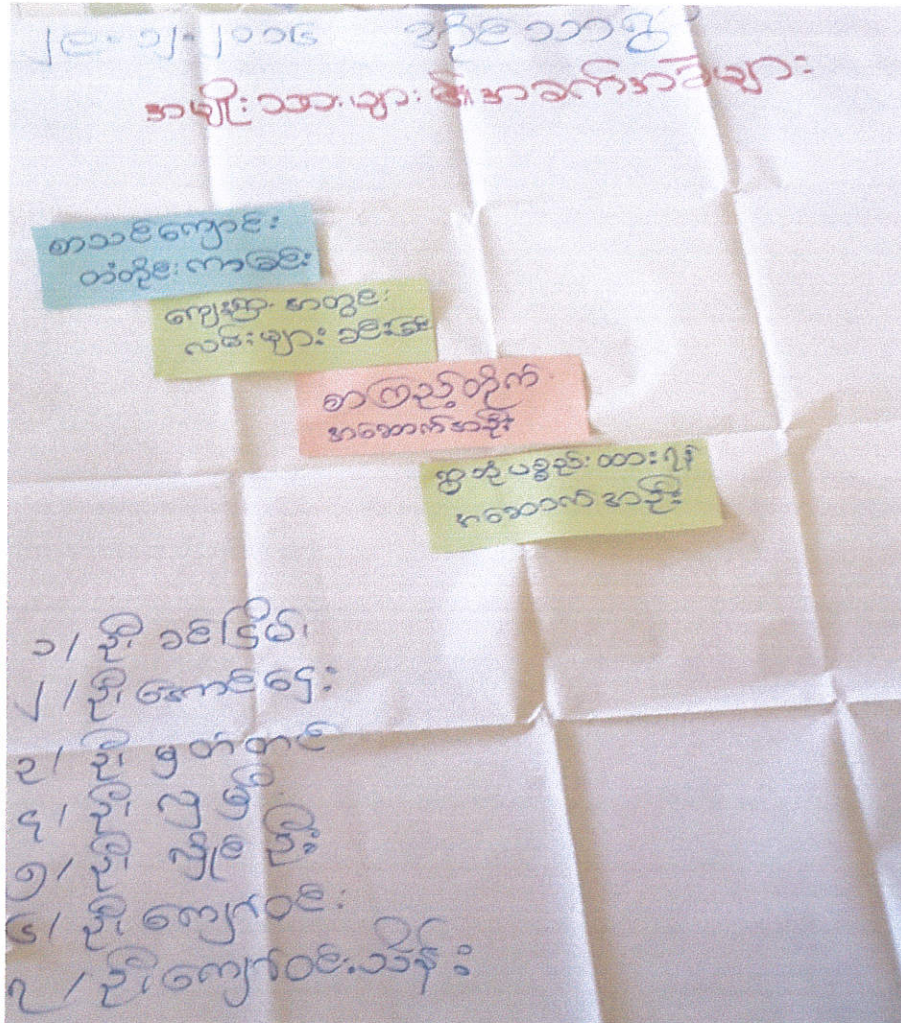 ၂၄-၁၂-၂၀၁၆ အိုင်သာရွာ
အမျိုးသားများ၏အခက်အခဲများ
စာသင်ကျောင်း
တံတိုင်းကာခြင်း
ကျေးရွာ အတွင်း
လမ်းများ ခင်းခြင်း
စာကြည့်တိုက်
အဆောက်အဦး
လှူဘွယ်ပစ္စည်းထားရန်
အဆောက်အဦး
၁/ ဦး ခင်ငြိမ်း
၂/ ဦး အောင်ဒွေး
၃/ ဦး မှတ်တင်
၄/ ဦး လှမြို့
၅/ ဦး လှိုင်ဦး
၆/ ဦး ကျော်ဝင်း
၇/ ဦး ကျော်ဝင်းသိန်း